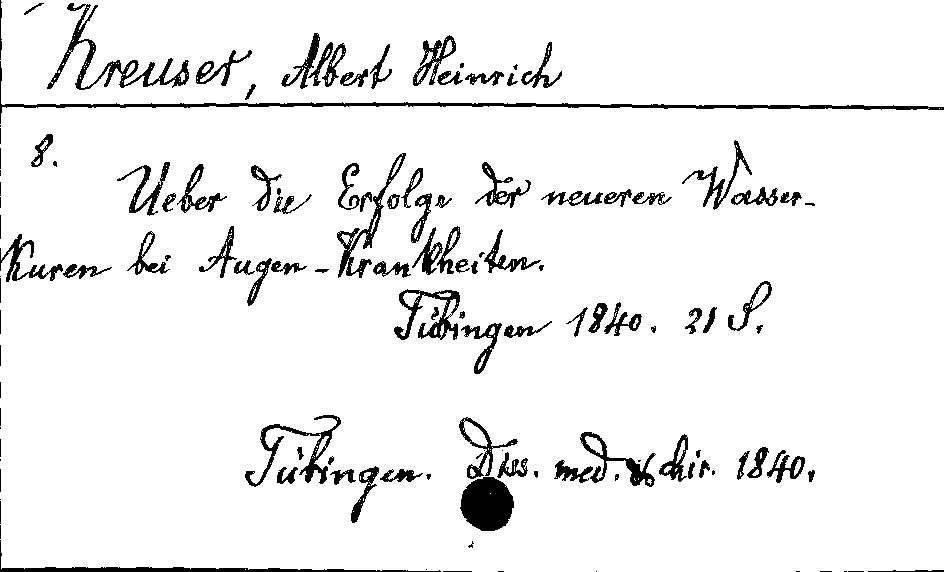 Kreuser, Albert Heinrich
8.
Ueber die Erfolge der neueren Wasser-
Kuren bei Augen-Krankheiten.
Tübingen 1840. 21 S.
Tübingen. Diss. med. & chir. 1840.